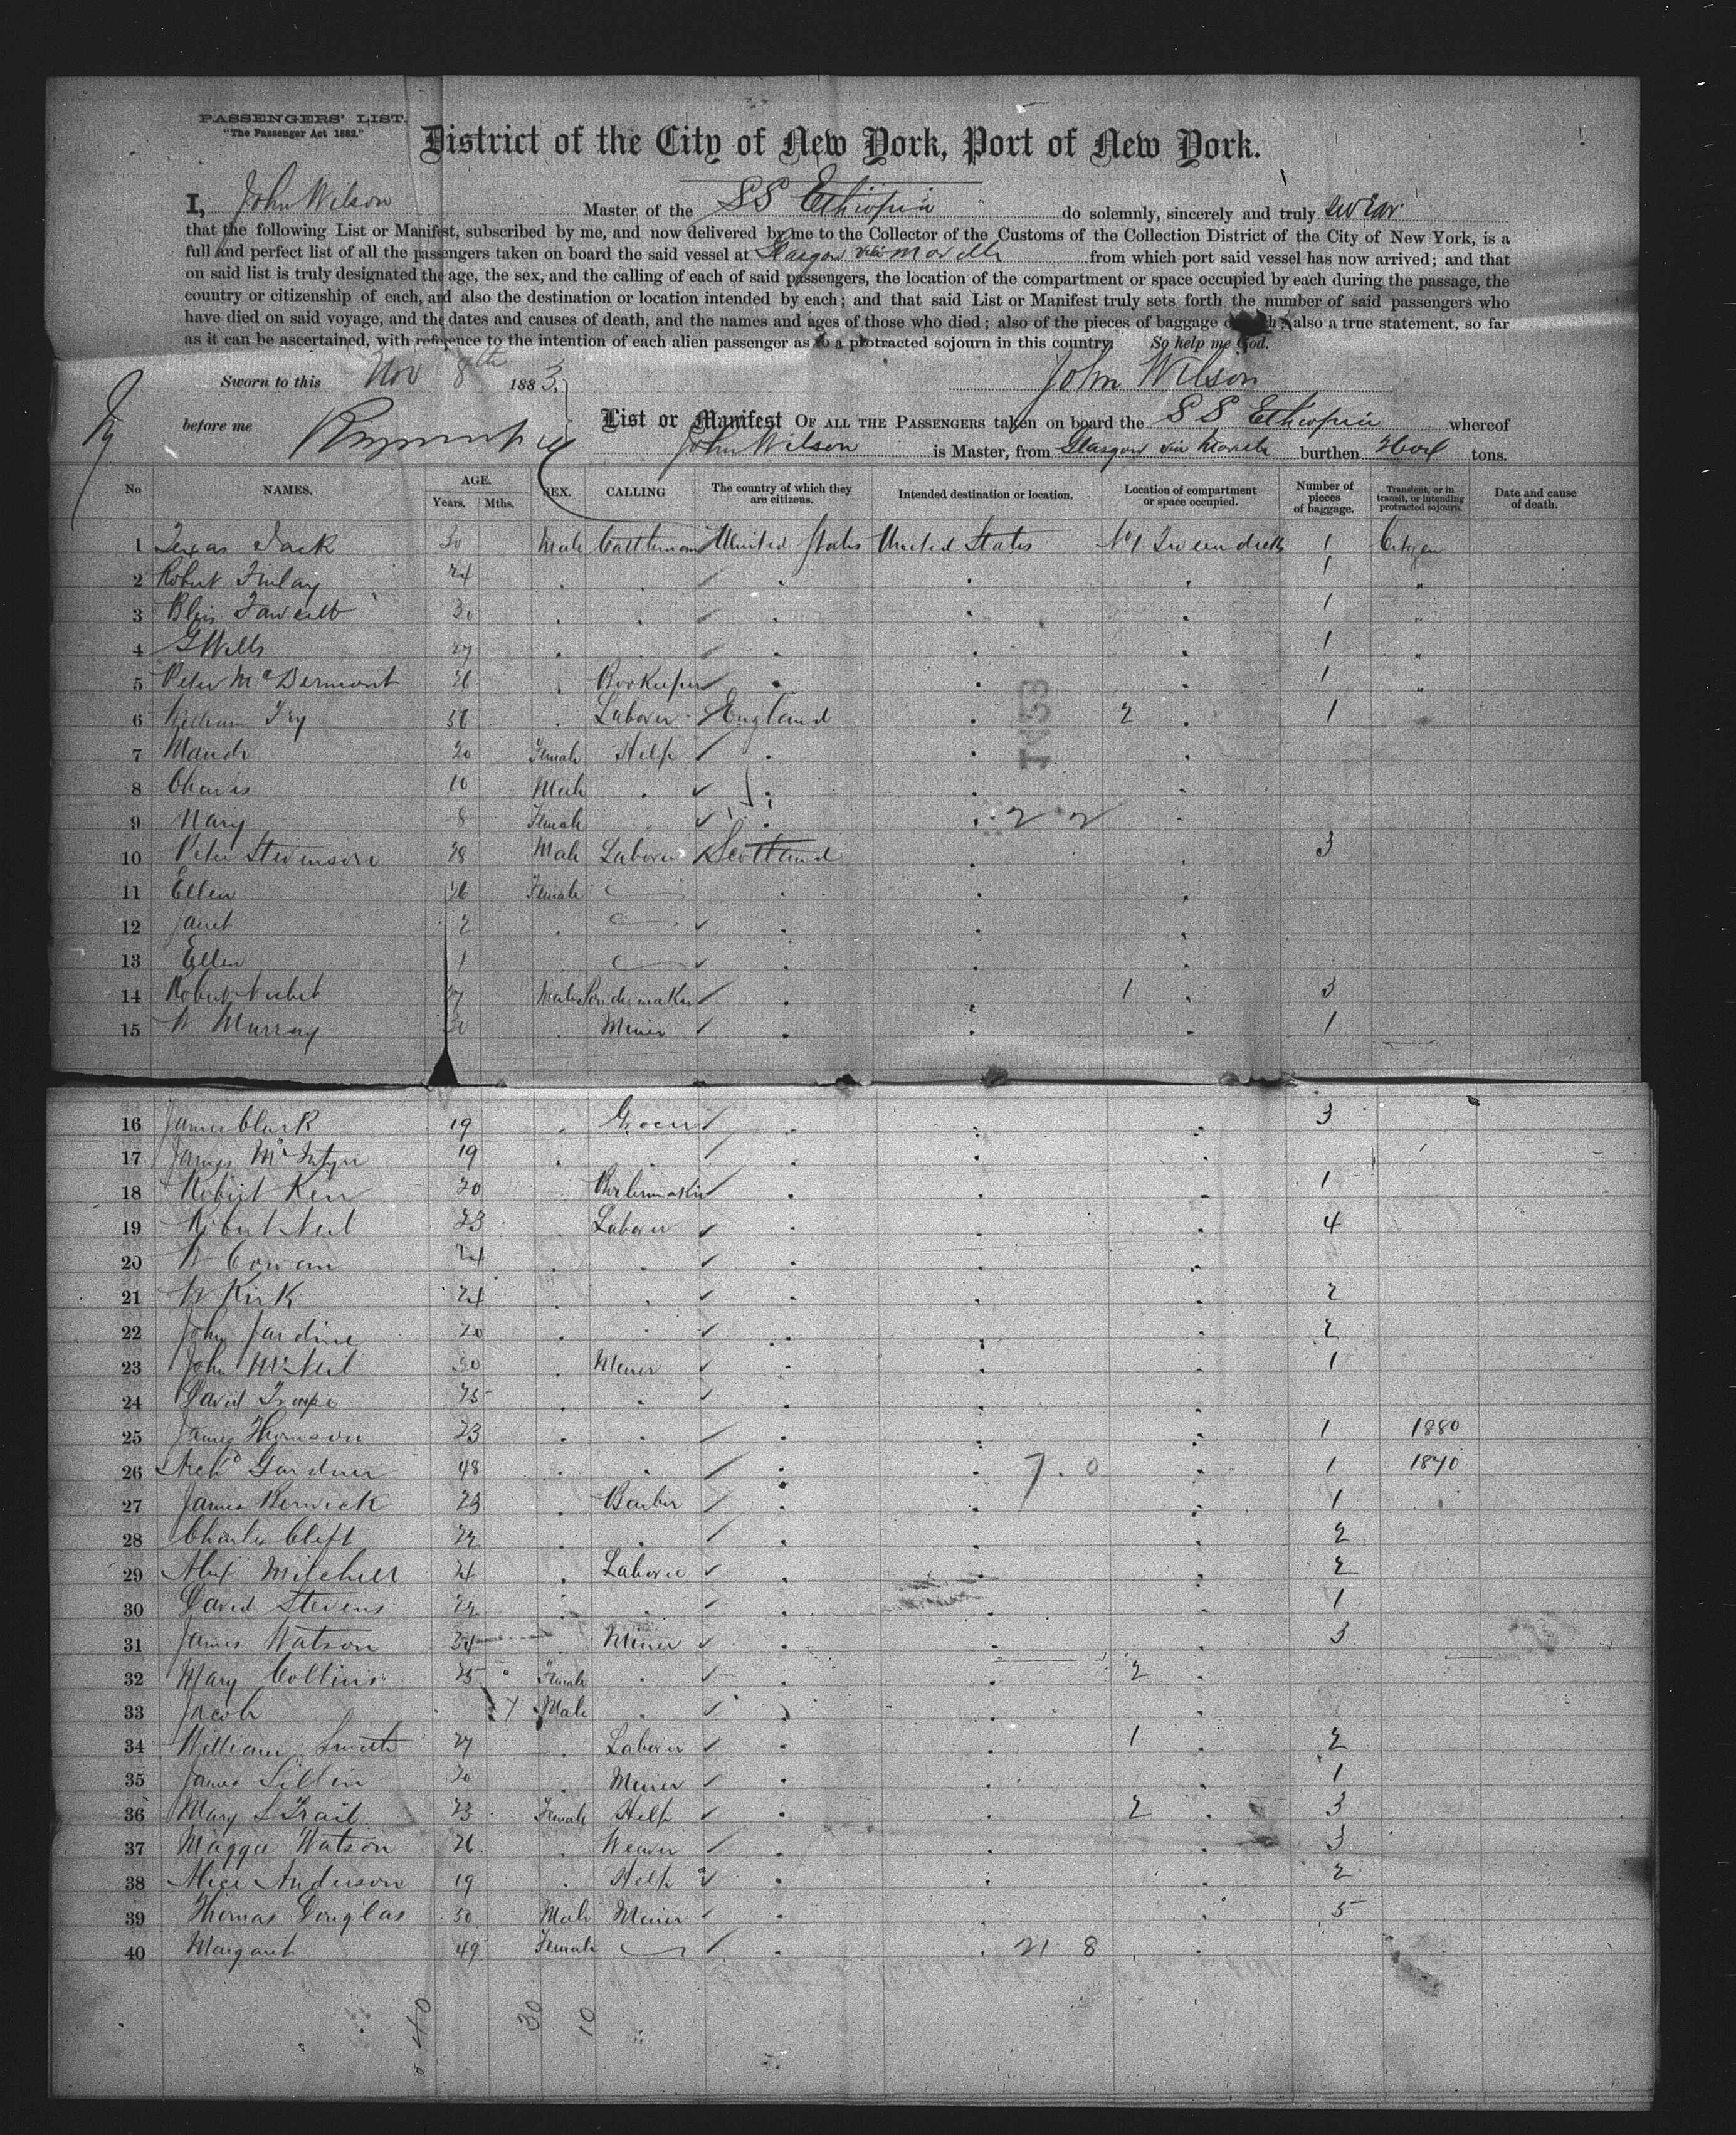 PASSENGERS' LIST.
"The Passenger Act 1882."
District of the City of New York, Port of New York.
I, John Wilson Master of the SS Ethiopia do solemnly, sincerely and truly swear
that the following List or Manifest, subscribed by me, and now delivered by me to the Collector of the Customs of the Collection District of the City of New York, is a
full and perfect list of all the passengers taken on board the said vessel at Glasgow via Moville from which port said vessel has now arrived; and that
on said list is truly designated the age, the sex, and the calling of each of said passengers, the location of the compartment or space occupied by each during the passage, the
country or citizenship of each, and also the destination or location intended by each; and that said List or Manifest truly sets forth the number of said passengers who
have died on said voyage, and the dates and causes of death, and the names and ages of those who died; also of the pieces of baggage of each; also a true statement, so far
as it can be ascertained, with reference to the intention of each alien passenger as to a protracted sojourn in this country. So help me God.
Sworn to this Nov 8th 1883. John Wilson
before me
List or Manifest OF ALL THE PASSENGERS taken on board the SS Ethiopia whereof
John Wilson is Master, from Glasgow via Moville burthen tons.
No NAMES. AGE. Years. Mths. SEX. CALLING The country of which they are citizens. Intended destination or location. Location of compartment or space occupied. Number of pieces of baggage. Transient, or in transit, or intending protracted sojourn. Date and cause of death.
1 Texas Jack 30 Male Cattleman United States United States No 1 Tween decks 1 Citizen
2 Robert Finlay 24 1 "
3 Fawcett 30 1 "
4 G Wells 27 1 "
5 Peter McDermont 26 Bookeeper 1 "
6 William Fry 56 Laborer England 2 1
7 Maude 20 Female Help
8 Charles 10 Male
9 Mary 8 Female 2 2
10 Peter Stevenson 28 Male Laborer Scotland 3
11 Ellen 26 Female
12 Janet 2
13 Ellen 1
14 Robert Nisbet 27 Male 1 3
15 W Murray 30 Miner 1
16 James Clark 19 Grocer 3
17 James McIntyre 19
18 Robert Kerr 20 Boilermaker 1
19 Robert Neil 23 Laborer 4
20 W Cowan 24
21 W Kirk 24 2
22 John Jardine 20 2
23 John McNeil 30 Miner 1
24 David 25
25 James Thomson 23 1 1880
26 Archd Gardner 48 7.0 1 1870
27 James Berwick 23 Barber 1
28 Charles Clift 22 2
29 Alex Mitchell 24 Laborer 2
30 David Stevens 22 1
31 James Watson 24 Miner 3
32 Mary Collins 25 Female 2
33 Jacob 7 Male
34 William Smith 27 Laborer 1 2
35 James 20 Miner 1
36 Mary S Trail 23 Female Help 2 3
37 Maggie Watson 26 Weaver 3
38 Alice Anderson 19 Help 2
39 Thomas Douglas 50 Male Miner 5
40 Margaret 49 Female 21 8
40 30 10